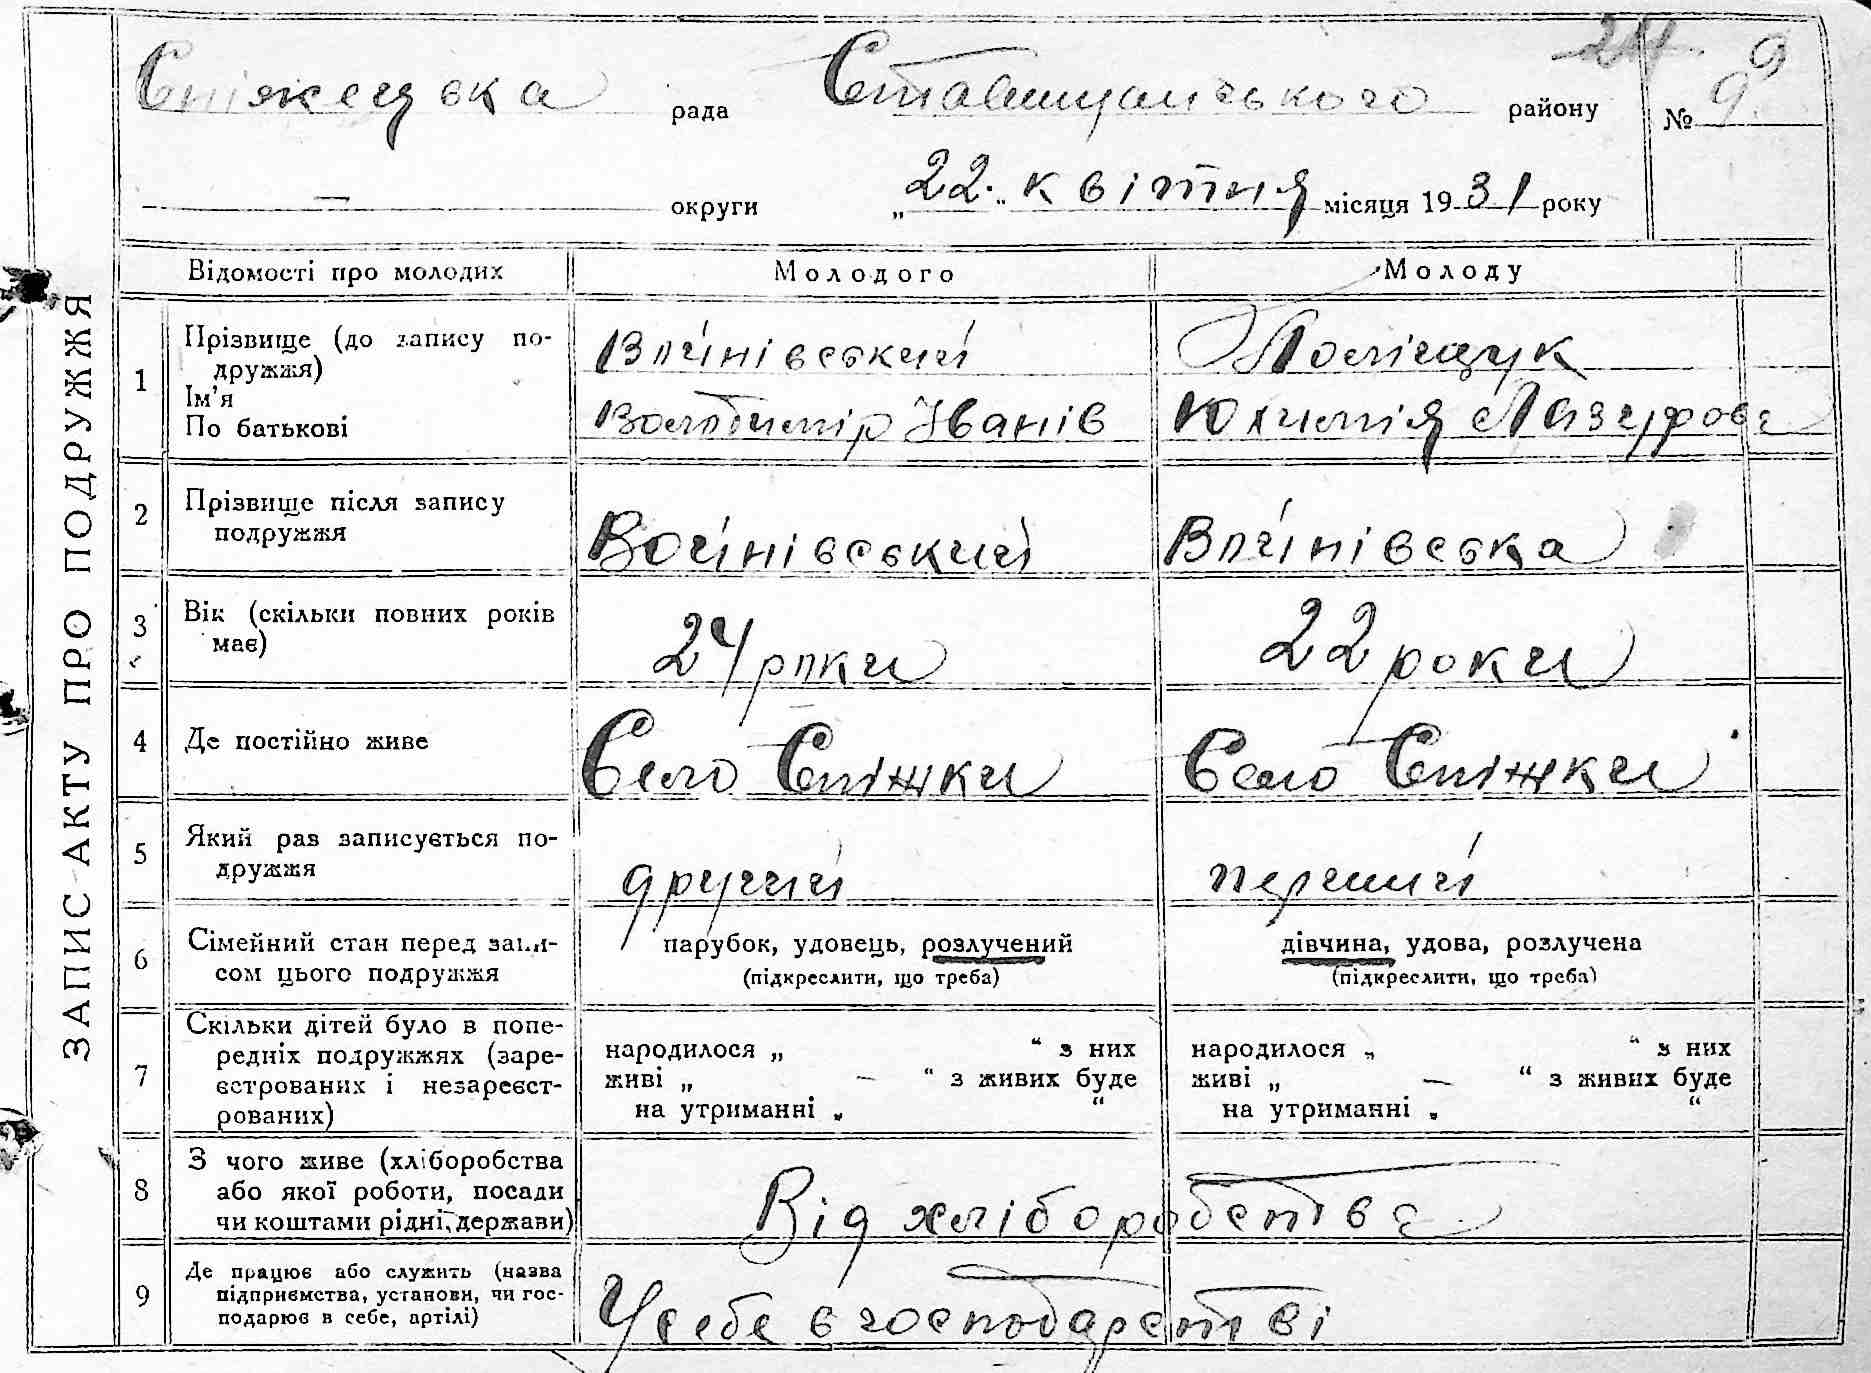 ЗАПИС АКТУ ПРО ПОДРУЖЖЯ
24
Сніжецька рада Ставищанського району № 99
— округи „22." квітня місяця 1931 року
Відомості про молодих Молодого Молоду
1 Прізвище (до запису подружжя) Війнівський Поліщук
Ім'я
По батькові Володимір Іванів Юхимія Лазурова
2 Прізвище після запису подружжя Войнівський Войнівська
3 Вік (скільки повних років має) 24 роки 22 роки
4 Де постійно живе Село Сніжки Село Сніжки
5 Який раз записується подружжя другий перший
6 Сімейний стан перед записом цього подружжя парубок, удовець, розлучений дівчина, удова, розлучена
(підкреслити, що треба) (підкреслити, що треба)
7 Скільки дітей було в попередніх подружжях (зареєстрованих і незареєстрованих) народилося „ “ з них народилося „ “ з них
живі „ — “ з живих буде живі „ — “ з живих буде
на утриманні „ “ на утриманні „ “
8 З чого живе (хліборобства або якої роботи, посади чи коштами рідні, держави) Від хліборобства
9 Де працює або служить (назва підприємства, установи, чи господарює в себе, артілі) У себе в господарстві